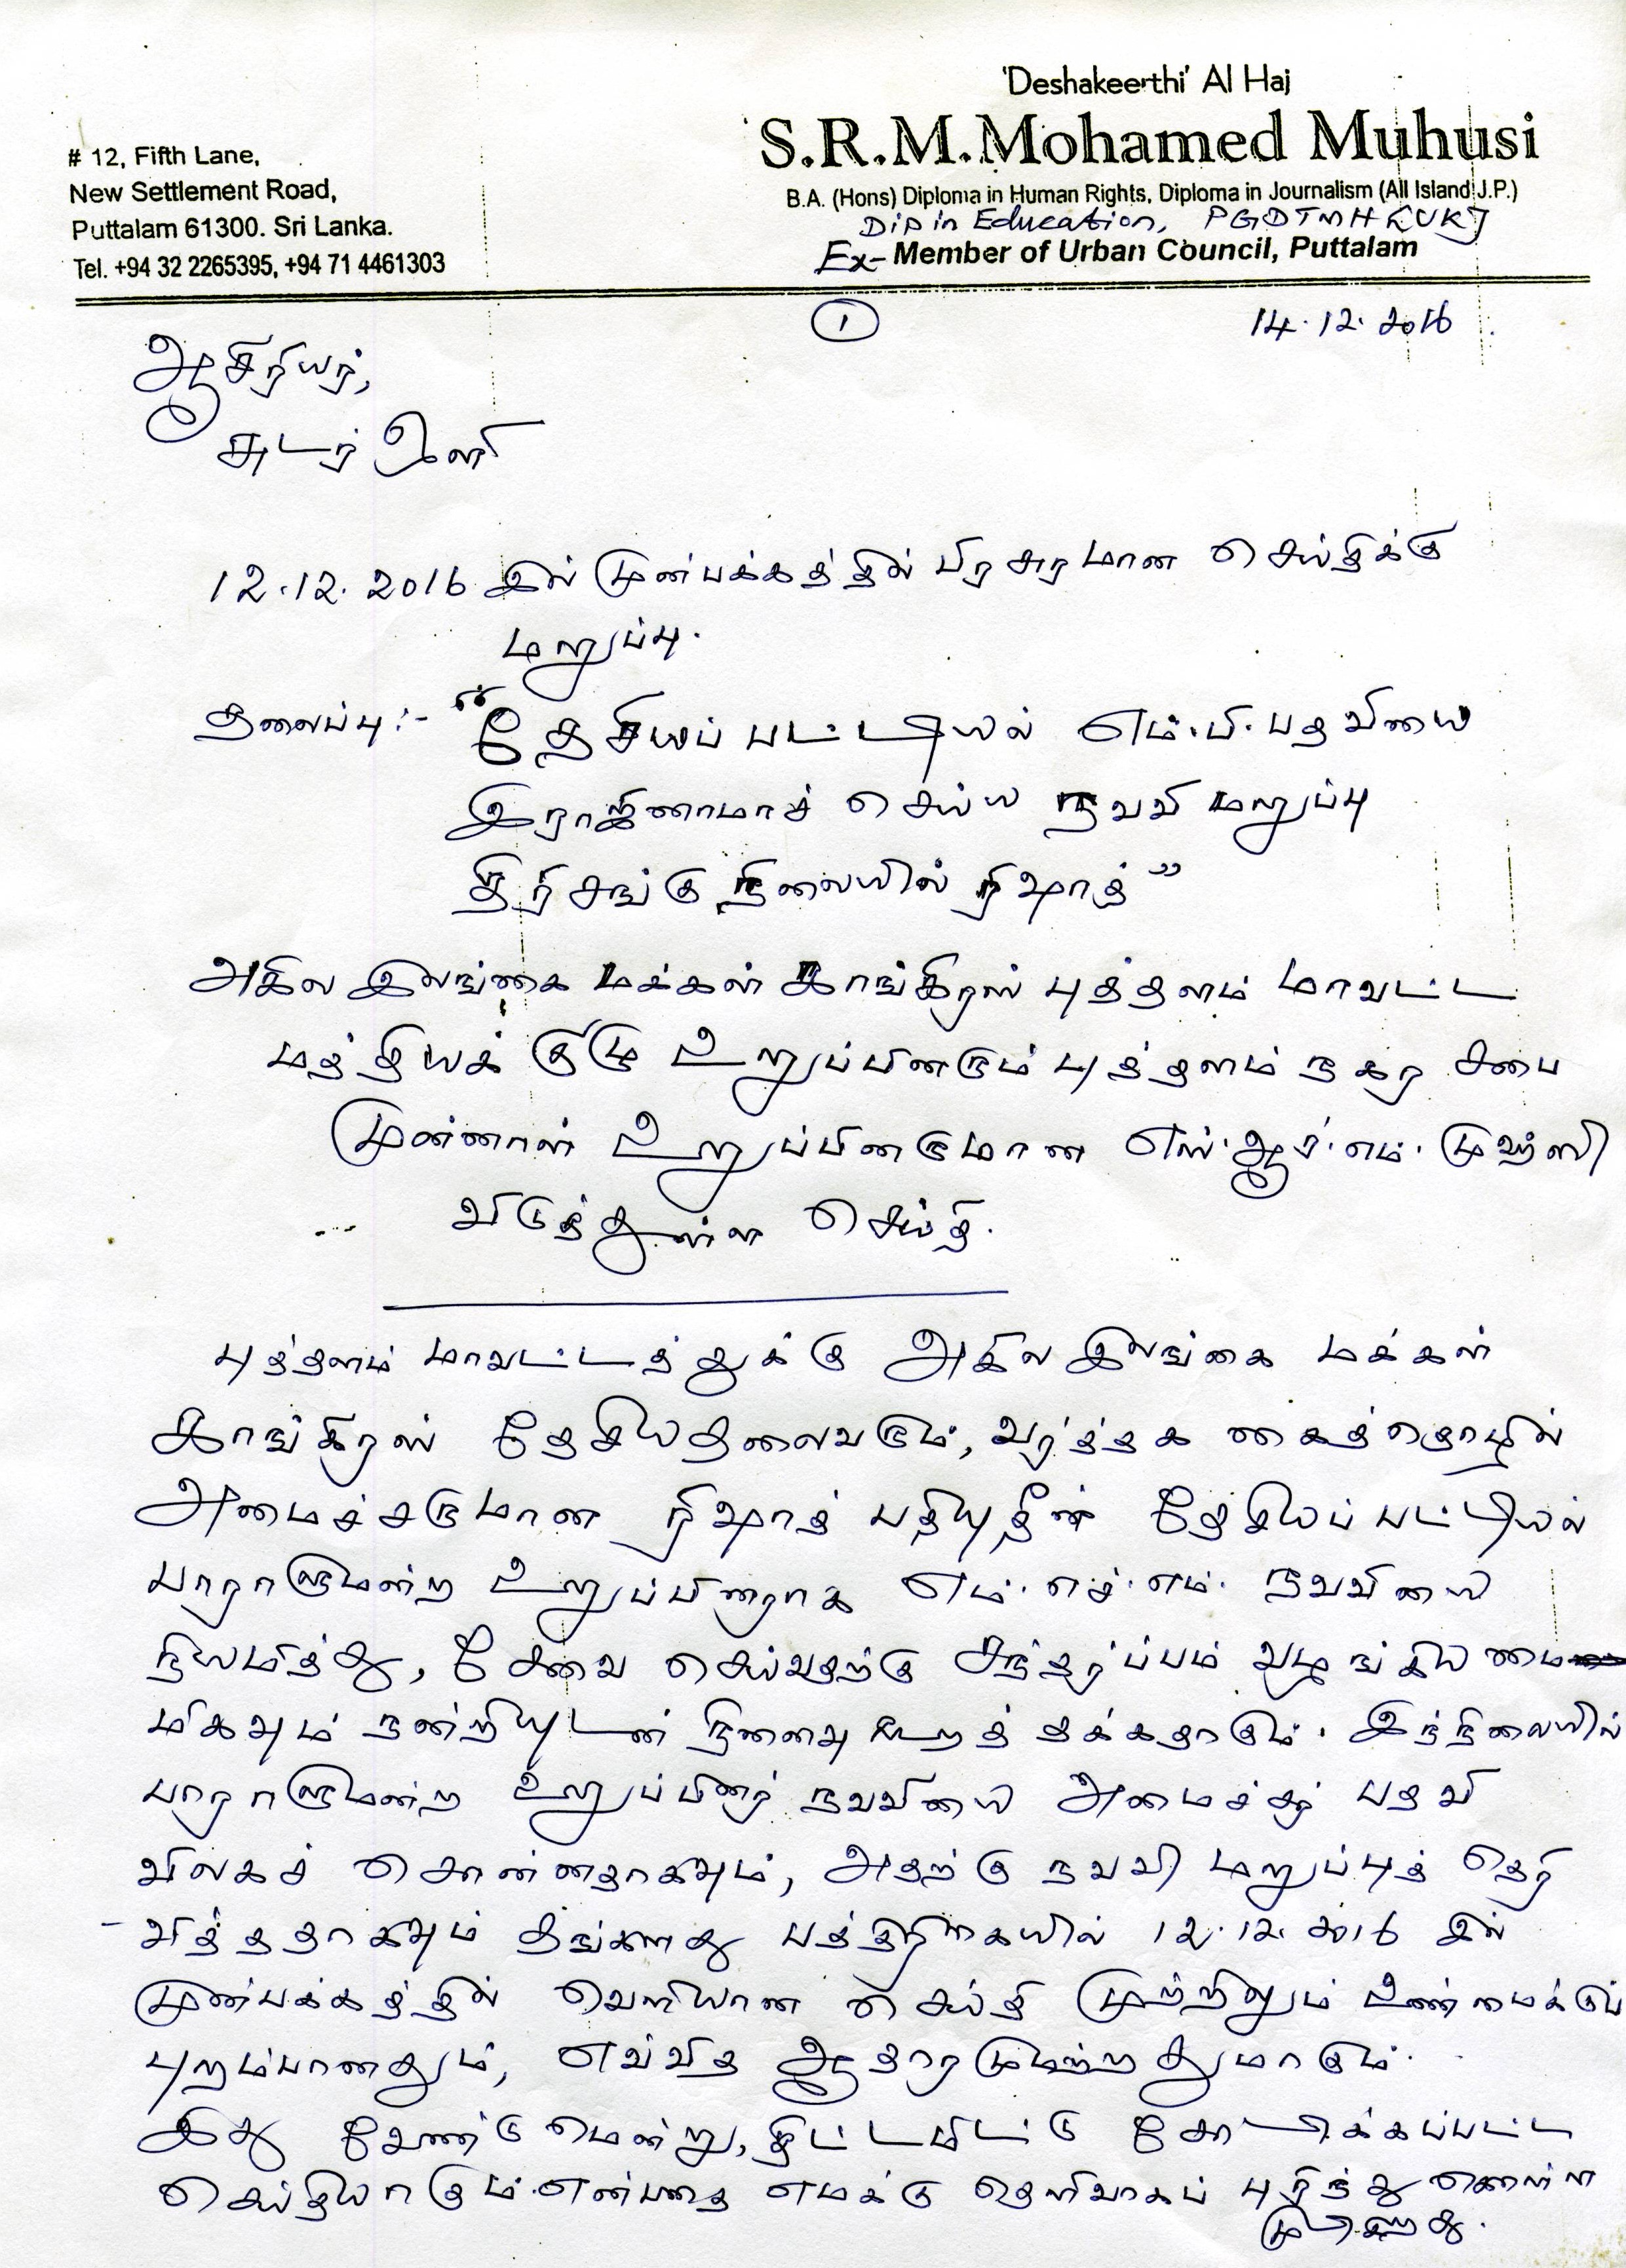 'Deshakeerthi' Al Haj
S.R.M.Mohamed Muhusi
B.A. (Hons) Diploma in Human Rights, Diploma in Journalism (All Island J.P.)
Dip in Education, PGDTMH [UK]
Ex- Member of Urban Council, Puttalam
# 12, Fifth Lane,
New Settlement Road,
Puttalam 61300. Sri Lanka.
Tel. +94 32 2265395, +94 71 4461303
1
14.12.2016
ஆசிரியர்,
சுடர் ஒளி
12.12.2016 இல் முன்பக்கத்தில் பிரசுரமான செய்திக்கு
மறுப்பு.
தலைப்பு:- "தேசியப் பட்டியல் எம்.பி. பதவியை
இராஜினாமாச் செய்ய நவவி மறுப்பு
திரிசங்கு நிலையில் ரிஷாத்"
அகில இலங்கை மக்கள் காங்கிரஸ் புத்தளம் மாவட்ட
மத்தியக் குழு உறுப்பினரும் புத்தளம் நகர சபை
முன்னாள் உறுப்பினருமான எஸ்.ஆர்.எம். முஹ்ஸி
விடுத்துள்ள செய்தி.
புத்தளம் மாவட்டத்துக்கு அகில இலங்கை மக்கள்
காங்கிரஸ் தேசியதலைவரும், வர்த்தக கைத்தொழில்
அமைச்சருமான ரிஷாத் பதியுதீன் தேசியப் பட்டியல்
பாராளுமன்ற உறுப்பினராக எம்.எச்.எம். நவவியை
நியமித்து, சேவை செய்வதற்கு சந்தர்ப்பம் வழங்கியமை
மிகவும் நன்றியுடன் நினைவு கூறத் தக்கதாகும். இந்நிலையில்
பாராளுமன்ற உறுப்பினர் நவவியை அமைச்சர் பதவி
விலகச் சொன்னதாகவும், அதற்கு நவவி மறுப்புத் தெரி
-வித்ததாகவும் தங்களது பத்திரிகையில் 12.12.2016 இல்
முன்பக்கத்தில் வெளியான செய்தி முற்றிலும் உண்மைக்குப்
புறம்பானதும், எவ்வித ஆதாரமுமற்றதுமாகும்.
இது வேண்டுமென்று, திட்டமிட்டு சோடிக்கப்பட்ட
செய்தியாகும் என்பதை எமக்கு தெளிவாகப் புரிந்து கொள்ள
முடிகிறது.